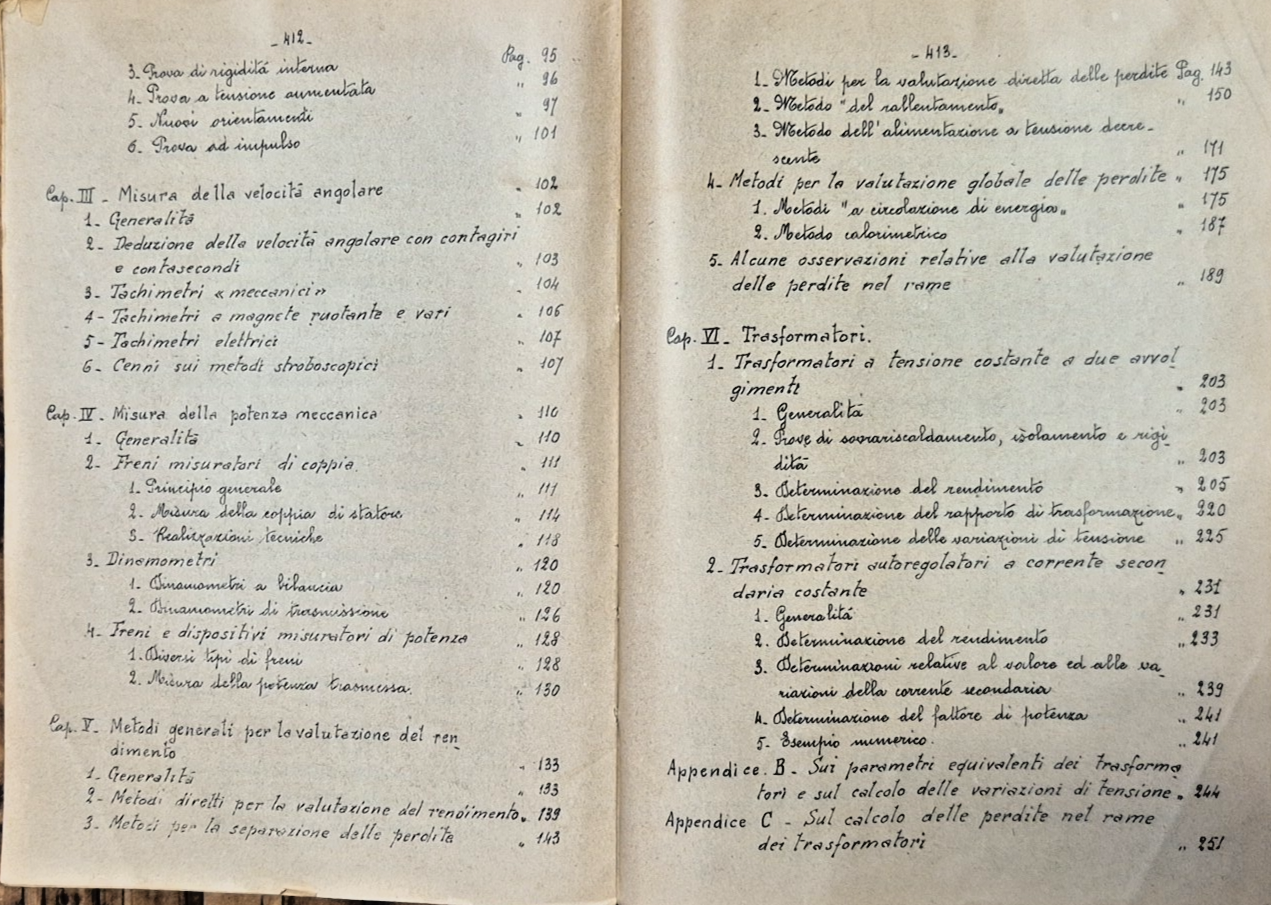 - 412 -
3. Prova di rigidità interna Pag. 95
4. Prova a tensione aumentata „ 96
5. Nuovi orientamenti „ 97
6. Prova ad impulso „ 101
Cap. III - Misura della velocità angolare „ 102
1- Generalità „ 102
2- Deduzione della velocità angolare con contagiri
e contasecondi „ 103
3- Tachimetri « meccanici » „ 104
4- Tachimetri a magnete ruotante e vari „ 106
5- Tachimetri elettrici „ 107
6- Cenni sui metodi stroboscopici „ 107
Cap. IV - Misura della potenza meccanica „ 110
1- Generalità „ 110
2- Freni misuratori di coppia. „ 111
1- Principio generale „ 111
2- Misura della coppia di statore „ 114
3- Realizzazioni tecniche „ 118
3- Dinamometri „ 120
1- Dinamometri a bilancia „ 120
2- Dinamometri di trasmissione „ 126
4- Freni e dispositivi misuratori di potenza „ 128
1- Diversi tipi di freni „ 128
2. Misura della potenza trasmessa. „ 130
Cap. V- Metodi generali per la valutazione del ren_
dimento „ 133
1- Generalità „ 133
2- Metodi diretti per la valutazione del rendimento „ 139
3- Metodi per la separazione delle perdite „ 143
- 413 -
1- Metodi per la valutazione diretta delle perdite Pag. 143
2- Metodo "del rallentamento„ „ 150
3- Metodo dell'alimentazione a tensione decre-
scente „ 171
4- Metodi per la valutazione globale delle perdite „ 175
1. Metodi "a circolazione di energia„ „ 175
2. Metodo calorimetrico „ 187
5- Alcune osservazioni relative alla valutazione
delle perdite nel rame „ 189
Cap. VI - Trasformatori.
1- Trasformatori a tensione costante a due avvol_
gimenti „ 203
1- Generalità „ 203
2- Prove di sovrariscaldamento, isolamento e rigi_
dità „ 203
3- Determinazione del rendimento „ 205
4- Determinazione del rapporto di trasformazione „ 220
5- Determinazione delle variazioni di tensione „ 225
2- Trasformatori autoregolatori a corrente secon_
daria costante „ 231
1- Generalità „ 231
2. Determinazione del rendimento „ 233
3. Determinazioni relative al valore ed alle va_
riazioni della corrente secondaria „ 239
4- Determinazione del fattore di potenza „ 241
5- Esempio numerico. „ 241
Appendice. B - Sui parametri equivalenti dei trasforma_
tori e sul calcolo delle variazioni di tensione „ 244
Appendice C - Sul calcolo delle perdite nel rame
dei trasformatori „ 251